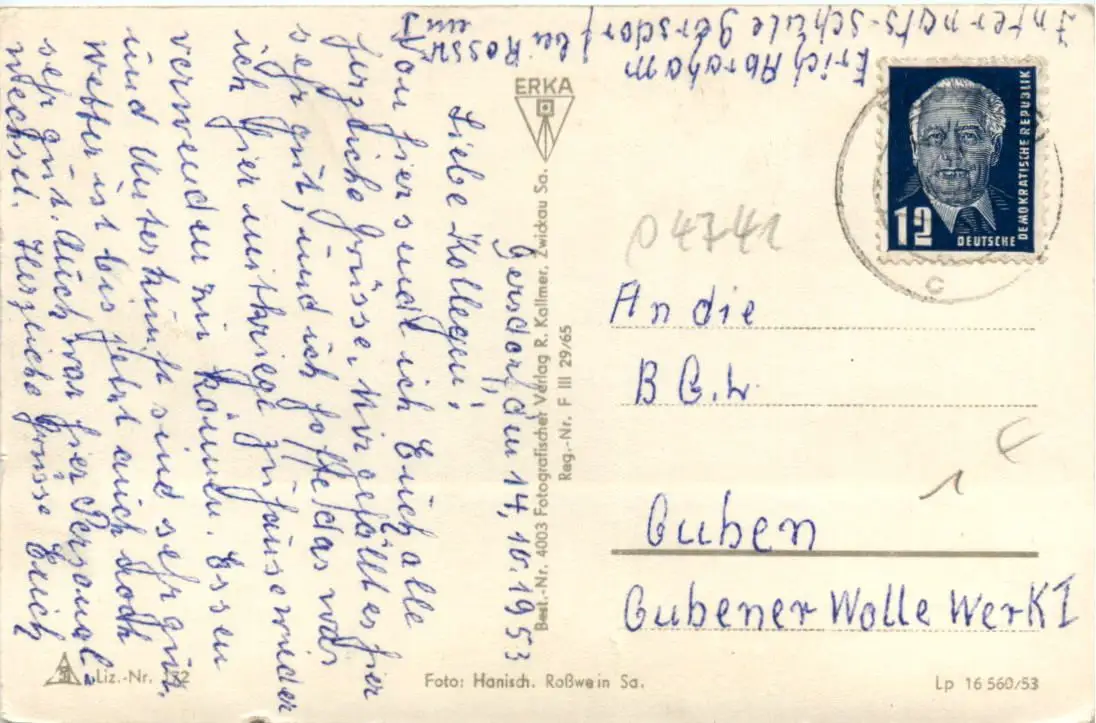 Erich Abraham
Internats-Schule Gersdorf bei Rosswein
Gersdorf, den 14, 10. 1953
Liebe Kollegen;
Von hier send ich Euch alle
herzliche Grüsse. Mir gefällt es hier
sehr gut, und ich hoffe das was
ich hier mitkriege zuhause wieder
verwenden zu können. Essen
und Unterkunft sind sehr gut.
Wetter ist bis jetzt auch noch
sehr gut. Auch war hier Personal
wechsel. Herzliche Grüsse Erich
ERKA
Best.-Nr. 4003 Fotografischer Verlag R. Kallmer, Zwickau Sa.
Reg.-Nr. F III 29/65
12
DEUTSCHE
DEMOKRATISCHE REPUBLIK
C
04741
An die
B G. L.
1 €
Guben
Gubener Wolle Werk I
Liz.-Nr. 172
Foto: Hanisch. Roßwein Sa.
Lp 16 560/53